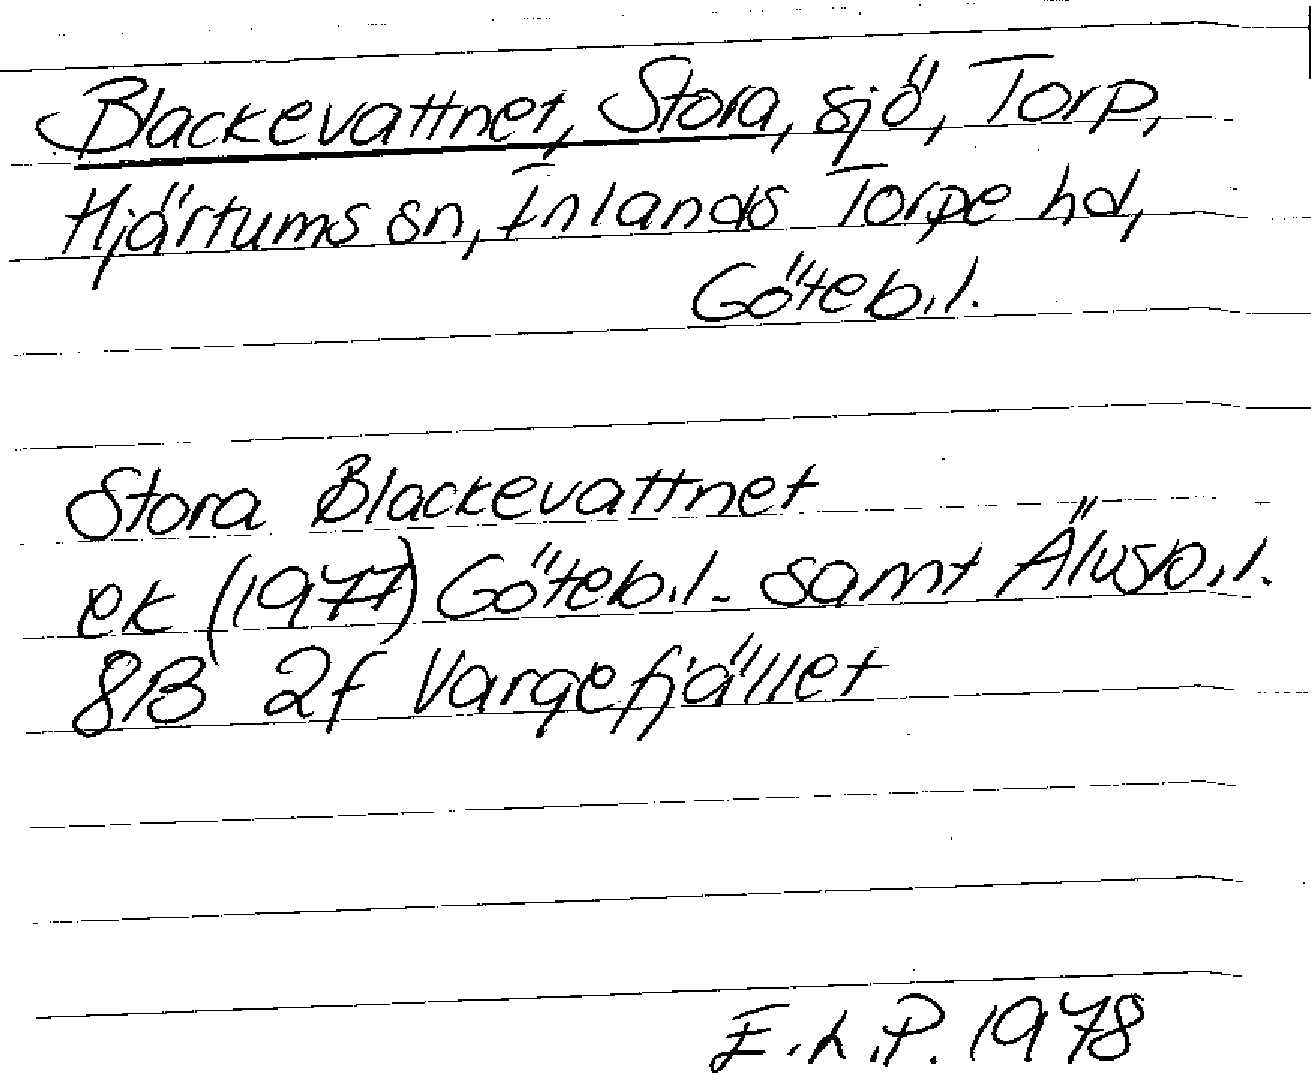 Blackevattnet, Stora, sjö, Torp,
Hjärtums sn, Inlands Torpe hd,
Göteb.l.
Stora Blackevattnet
ek (1977) Göteb.l. samt Älvsb.l.
8B 2f Vargefjället
E.L.P. 1978